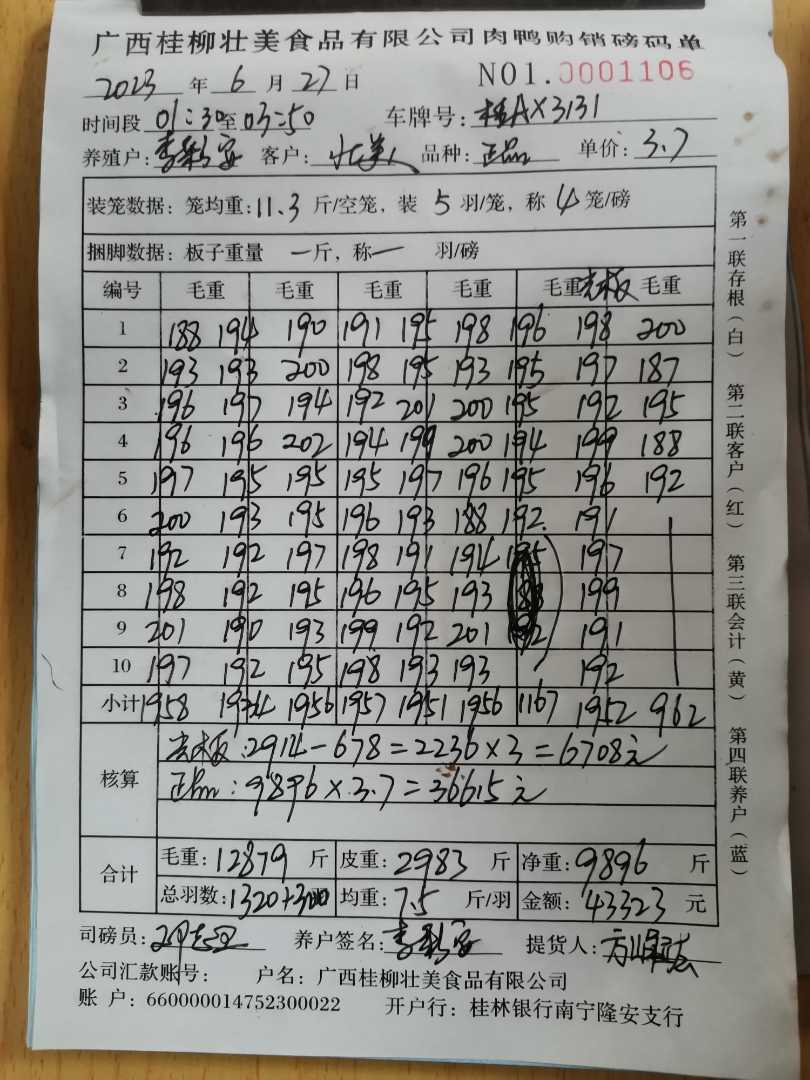 广西桂柳壮美食品有限公司肉鸭购销磅码单
2023 年 6 月 27 日 NO1.0001106
时间段 01:30 至 03:50 车牌号: 桂AX3131
养殖户: 李彩安 客户: 壮美人 品种: 正品 单价: 3.7
装笼数据: 笼均重: 11.3 斤/空笼, 装 5 羽/笼, 称 4 笼/磅
捆脚数据: 板子重量 一 斤, 称 一 羽/磅
编号 毛重 毛重 毛重 毛重 毛重 光板 毛重
1 188 194 190 191 195 198 196 198 200
2 193 193 200 198 195 193 195 197 187
3 196 197 194 192 201 200 195 192 195
4 196 196 202 194 199 200 194 199 188
5 197 195 195 195 197 196 195 196 192
6 200 193 195 196 193 188 192 191
7 192 192 197 198 191 194 195 197
8 198 192 195 196 195 193 199
9 201 190 193 199 192 201 192 191
10 197 192 195 198 193 193 192
小计 1958 1934 1956 1957 1951 1956 1167 1952 962
核算 光板: 2914-678=2236×3=6708元
正品: 9896×3.7=36615元
合计 毛重: 12879 斤 皮重: 2983 斤 净重: 9896 斤
总羽数: 1320+300 均重: 7.5 斤/羽 金额: 43323 元
司磅员: 养户签名: 李彩安 提货人:
公司汇款账号: 户名: 广西桂柳壮美食品有限公司
账 户: 660000014752300022 开户行: 桂林银行南宁隆安支行
第一联存根(白) 第二联客户(红) 第三联会计(黄) 第四联养户(蓝)